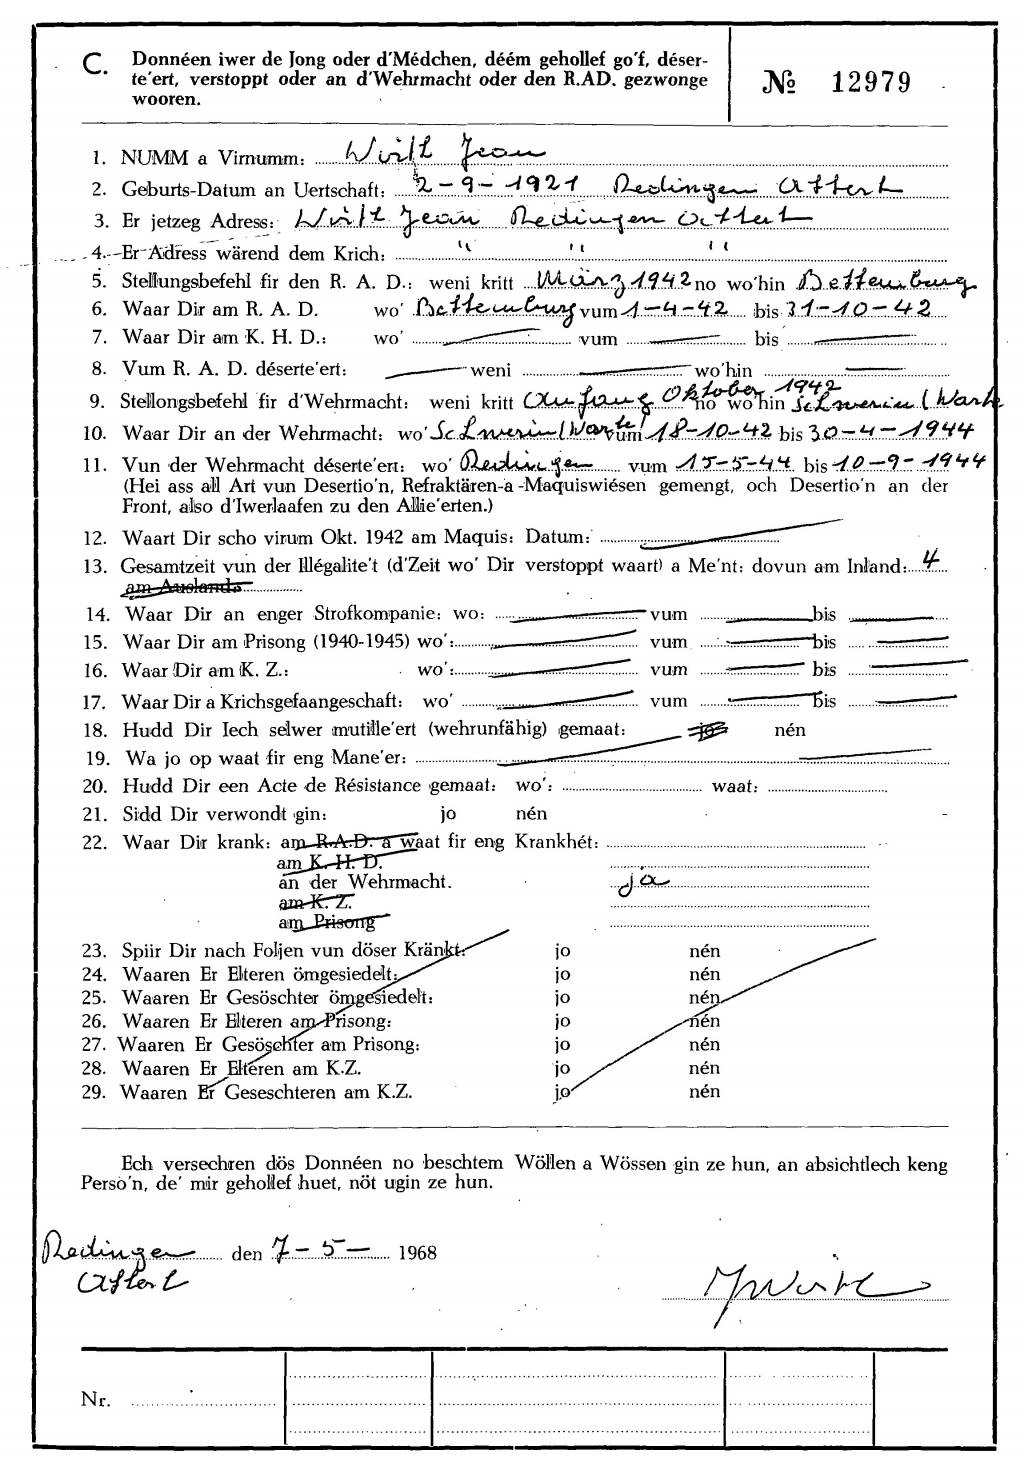 C. Donnéen iwer de Jong oder d'Médchen, déém gehollef go'f, déser-
te'ert, verstoppt oder an d'Wehrmacht oder den R.AD. gezwonge
wooren.
№ 12979
1. NUMM a Virnumm: Wirth Jean
2. Geburts-Datum an Uertschaft: 2-9-1921 Redingen Attert
3. Er jetzeg Adress: Wirth Jean Redingen Attert
4. Er Adress wärend dem Krich: " " "
5. Stellungsbefehl fir den R. A. D.: weni kritt März 1942 no wo'hin Bettemburg
6. Waar Dir am R. A. D. wo' Bettemburg vum 1-4-42 bis 31-10-42
7. Waar Dir am K. H. D.: wo' vum bis
8. Vum R. A. D. déserte'ert: weni wo'hin
9. Stellongsbefehl fir d'Wehrmacht: weni kritt Anfang Oktober 1942 no wo'hin Schwerin/Warte
10. Waar Dir an der Wehrmacht: wo' Schwerin/Warte vum 18-10-42 bis 30-4-1944
11. Vun der Wehrmacht déserte'ert: wo' Redingen vum 15-5-44 bis 10-9-1944
(Hei ass all Art vun Desertio'n, Refraktären-a-Maquiswiésen gemengt, och Desertio'n an der
Front, also d'Iwerlaafen zu den Allie'erten.)
12. Waart Dir scho virum Okt. 1942 am Maquis: Datum:
13. Gesamtzeit vun der Illégalite't (d'Zeit wo' Dir verstoppt waart) a Me'nt: dovun am Inland: 4
am Auslands
14. Waar Dir an enger Strofkompanie: wo: vum bis
15. Waar Dir am Prisong (1940-1945) wo': vum bis
16. Waar Dir am K. Z.: wo': vum bis
17. Waar Dir a Krichsgefaangeschaft: wo' vum bis
18. Hudd Dir Iech selwer mutille'ert (wehrunfähig) gemaat: jo nén
19. Wa jo op waat fir eng Mane'er:
20. Hudd Dir een Acte de Résistance gemaat: wo': waat:
21. Sidd Dir verwondt gin: jo nén
22. Waar Dir krank: am R.A.D. a waat fir eng Krankhét:
am K. H. D.
an der Wehrmacht. ja
am K. Z.
am Prisong
23. Spiir Dir nach Foljen vun döser Kränkt: jo nén
24. Waaren Er Elteren ömgesiedelt: jo nén
25. Waaren Er Gesöschter ömgesiedelt: jo nén
26. Waaren Er Elteren am Prisong: jo nén
27. Waaren Er Gesöschter am Prisong: jo nén
28. Waaren Er Elteren am K.Z. jo nén
29. Waaren Er Geseschteren am K.Z. jo nén
Ech versechren dös Donnéen no beschtem Wöllen a Wössen gin ze hun, an absichtlech keng
Perso'n, de' mir gehollef huet, nöt ugin ze hun.
Redingen den 7-5- 1968
Attert
JWirth
Nr.